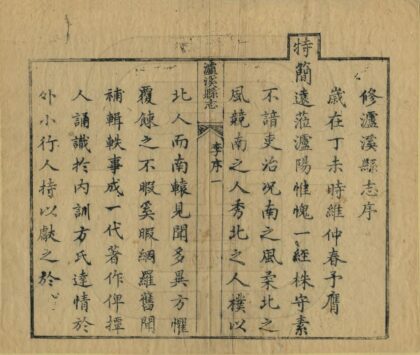 修瀘溪縣志序
歲在丁未時維仲春予膺
特
簡遠蒞瀘陽惟愧一經株守素
不諳吏治況南之風柔北之
風競南之人秀北之人樸以
瀘溪縣志
序
一
北人而南轅見聞多異方懼
覆餗之不暇奚暇網羅舊聞
補輯軼事成一代著作俾撢
人誦識於內訓方氏達情於
外小行人持以獻之於